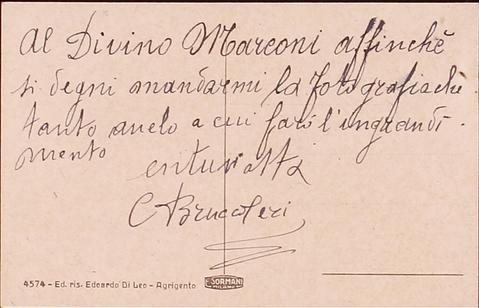 Al Divino Marconi affinchè
si degni mandarmi la fotografia che
tanto anelo a cui farò l'ingrandi-
mento
C Bruccoleri
4574 - Ed. ris. Edoardo Di Leo - Agrigento
SORMANI
MILANO